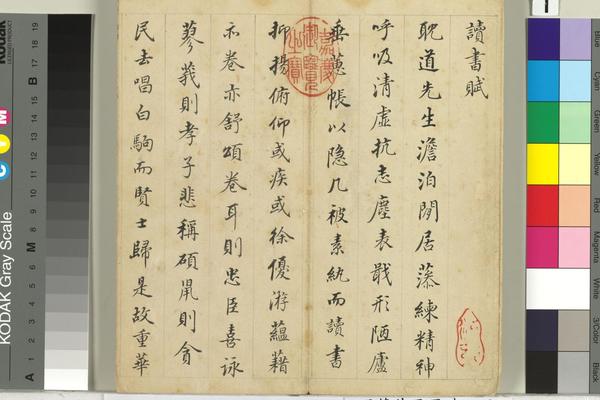 讀書賦
耽道先生澹泊閒居藻練精神
呼吸清虛抗志塵表戢形陋廬
垂蕙帳以隐几被素紈而讀書
抑揚俯仰或疾或徐優游蘊藉
亦卷亦舒頌卷耳則忠臣喜詠
蓼莪則孝子悲稱碩鼠則貪
民去唱白駒而賢士歸是故重華
嘉慶御覽之寶
KODAK Gray Scale
C Y M
A 1 2 3 4 5 6 M 8 9 10 11 12 13 14 15 B 17 18 19
Blue
Cyan
Green
Yellow
Red
Magenta
White
3/Color
Black